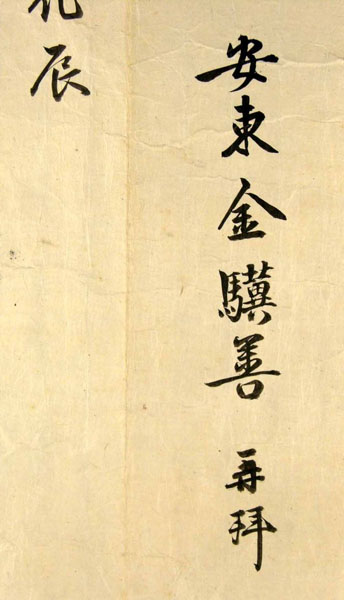 安東金驥善 再拜
花辰